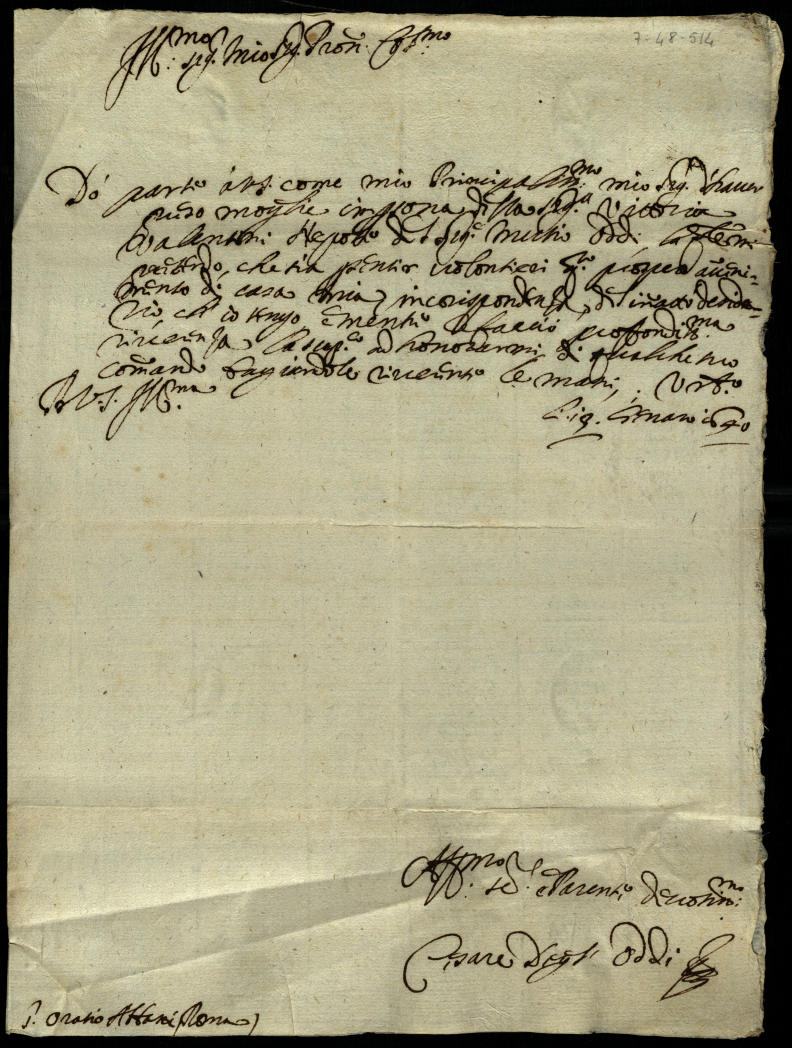 7-48-514
Ill.mo Sig. Mio Sig. Pron. Col.mo
Dò parte à V.S. come mio Principaliss.mo mio Sig. d'haver
preso moglie in persona della Sig.a Vittoria
Valentini Nepote del Sig. Mutio Oddi
che sia sentir volontieri q.to
mento di casa mia, in corrispondenza
rio, ch'io tengo e mentre le faccio profondiss.ma
riverenza la sup.co ad honorarmi di qualche suo
comando baggiandole riverente le mani, Urb.o
Di V.S. Ill.ma
li 9. Genaro
Aff.mo Se.r e Parente Devotiss.mo
Cesare Degl' Oddi
S. Oratio Albani (Roma)